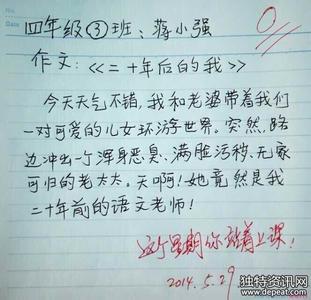 0
四年级③班:蒋小强
作文:<<二十年后的我>>
今天天气不错,我和老婆带着我们
一对可爱的儿女环游世界。突然,路
边冲出一个浑身恶臭、满脸污秽、无家
可归的老太太。天啊!她竟然是我
二十年前的语文老师!
这个星期你站着上课!
2014.5.29
独特资讯网
www.depeat.com